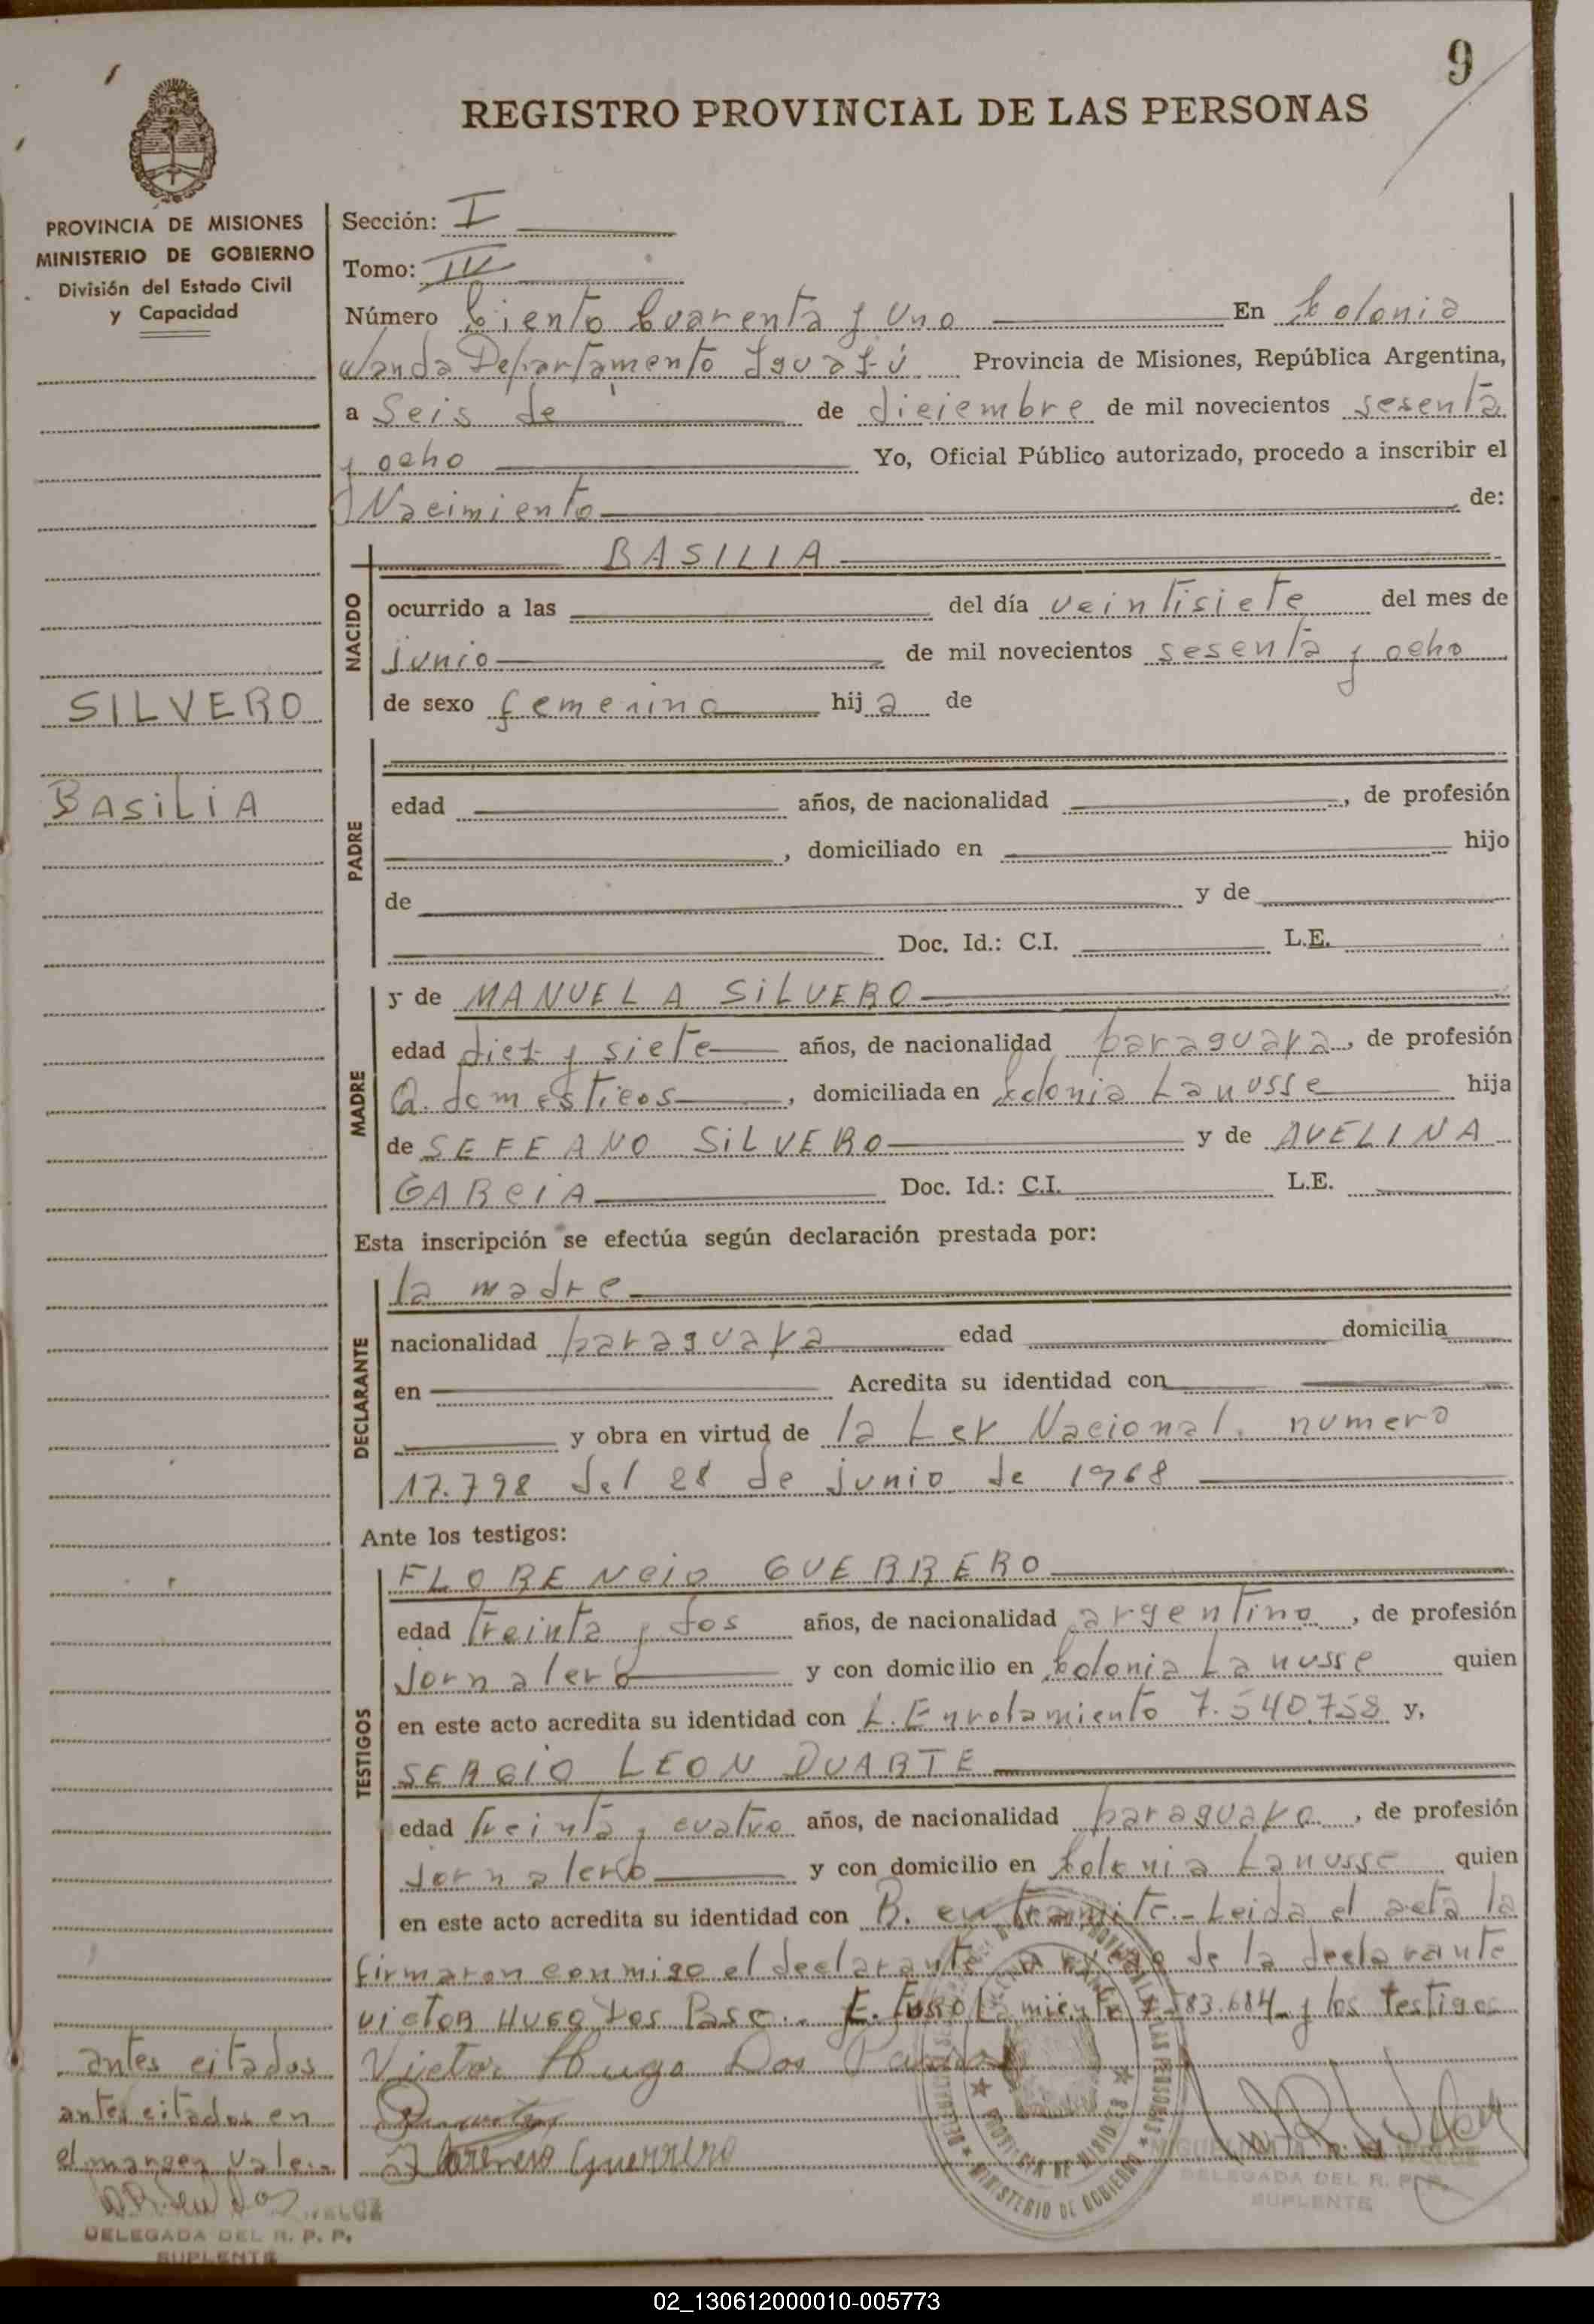 9
REGISTRO PROVINCIAL DE LAS PERSONAS
PROVINCIA DE MISIONES
MINISTERIO DE GOBIERNO
División del Estado Civil
y Capacidad
Sección: I
Tomo: IV
Número Ciento Cuarenta y Uno En Colonia
Wanda Departamento Iguazú Provincia de Misiones, República Argentina,
a Seis de de diciembre de mil novecientos sesenta
y ocho Yo, Oficial Público autorizado, procedo a inscribir el
Nacimiento de:
SILVERO
BASILIA
NACIDO
BASILIA
ocurrido a las del día veintisiete del mes de
junio de mil novecientos sesenta y ocho
de sexo femenino hija de
PADRE
edad años, de nacionalidad , de profesión
, domiciliado en hijo
de y de
Doc. Id.: C.I. L.E.
MADRE
y de MANUELA SILVERO
edad diez y siete años, de nacionalidad paraguaya, de profesión
Q. domesticos, domiciliada en Colonia Lanusse hija
de SEFEANO SILVERO y de AVELINA
GARCIA Doc. Id.: C.I. L.E.
Esta inscripción se efectúa según declaración prestada por:
DECLARANTE
la madre
nacionalidad paraguaya edad domicilia
en Acredita su identidad con
y obra en virtud de la Ley Nacional numero
17.798 del 28 de junio de 1968
Ante los testigos:
TESTIGOS
FLORENCIO GUERRERO
edad treinta y dos años, de nacionalidad argentino, de profesión
Jornalero y con domicilio en Colonia Lanusse quien
en este acto acredita su identidad con L. Enrolamiento 7.540.758 y,
SERGIO LEON DUARTE
edad treinta y cuatro años, de nacionalidad paraguayo, de profesión
Jornalero y con domicilio en Colonia Lanusse quien
en este acto acredita su identidad con B. en tramite.- Leida el acta la
firmaron conmigo el declarante a ruego de la declarante
VICTOR HUGO Dos 83.684 y los testigos
Victor Hugo Dos
Florencio Guerrero
antes citados
antes citados en
el margen vale.-
DELEGADA DEL R. P. P.
SUPLENTE
DELEGADA DEL R. P. P.
SUPLENTE
MINISTERIO DE GOBIERNO
PROVINCIA DE MISIONES
02_130612000010-005773